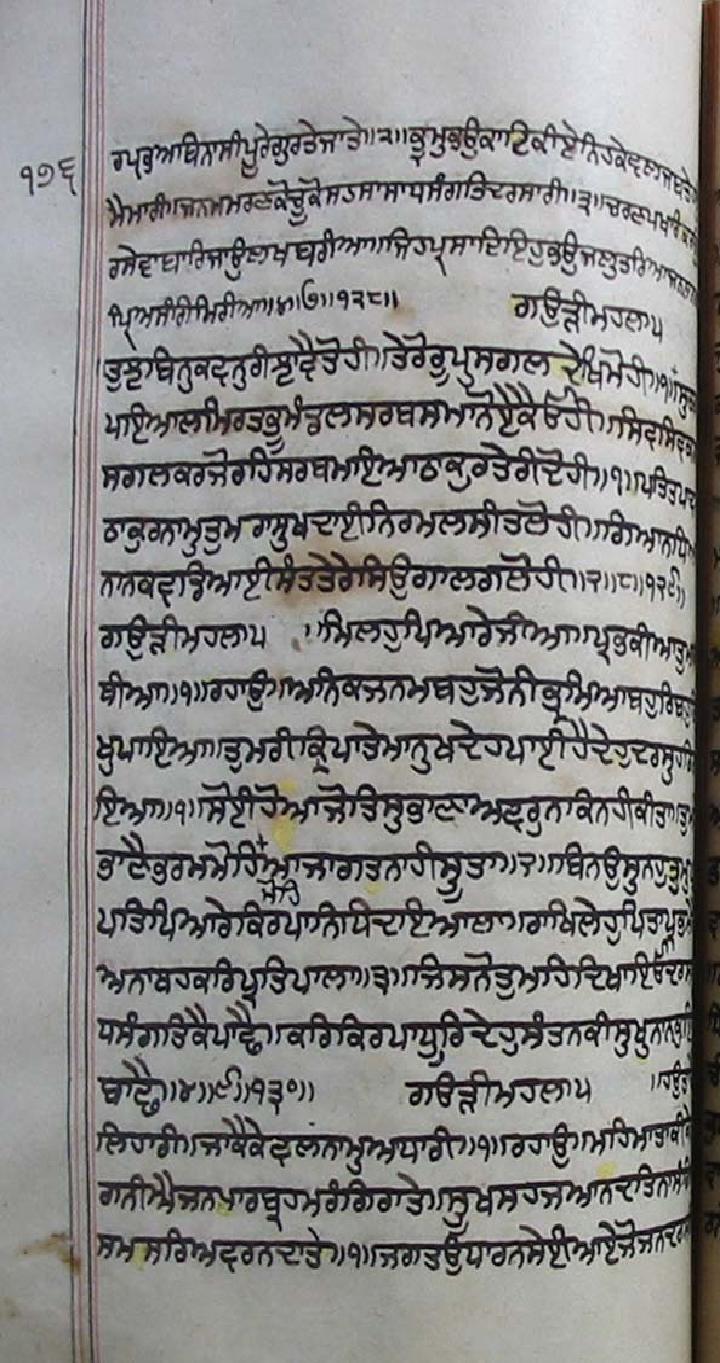 ੧੭੬
ਰਪ੍ਰਭੁਆਬਿਨਾਸੀਪੂਰੇਗੁਰਤੇਜਾਤੇ॥੨॥ਭ੍ਰਮੁਭਉਕਾਟਿਕੀਏਨਿਹਕੇਵਲਜਬਤੇ
ਹੈਮਾਰੀ॥ਜਨਮਮਰਣਕੋਚੂਕੋਸਹਸਾਸਾਧਸੰਗਤਿਦਰਸਾਰੀ॥੩॥ਚਰਣਪਖਾਰਿਕ
ਰਸੇਵਾਬਾਰਿਜਾਉਲਖਬਰੀਆ॥ਜਿਹਪ੍ਰਸਾਦਿਇਹੁਭਉਜਲੁਤਰਿਆਜਨ
ਪ੍ਰਿਅਸੰਗਿਮਿਰੀਆ॥੪॥੭॥੧੨੮॥ ਗਉੜੀਮਹਲਾ੫
ਤੁਝਬਿਨੁਕਵਨੁਰੀਝਾਵੈਤੋਹੀ॥ਤੇਰੋਰੂਪੁਸਗਲਦੇਖਿਮੋਹੀ॥੧॥ਸੁਰਗ
ਪਇਆਲਮਿਰਤਭੂਅਮੰਡਲਸਰਬਸਮਾਨੋਏਕੈਓਹੀ॥ਸਿਵਸਿਵਕ
ਸਗਲਕਰਜੋਰਹਿਸਰਬਮਇਆਠਾਕੁਰਤੇਰੀਦੋਹੀ॥੧॥ਪਤਿਤਪਾਵ
ਠਾਕੁਰਨਾਮੁਤੁਮਰਾਸੁਖਦਾਈਨਿਰਮਲਸੀਤਲੋਹੀ॥ਗਿਆਨਧਿਆ
ਨਾਨਕਵਡਿਆਈਸੰਤਤੇਰੇਸਿਉਗਾਲਗਲੋਹੀ॥੨॥੮॥੧੨੯॥
ਗਉੜੀਮਹਲਾ੫ ॥ਮਿਲਹੁਪਿਆਰੇਜੀਆ॥ਪ੍ਰਭਕੀਆਤੁਮ
ਥੀਆ॥੧॥ਰਹਾਉ॥ਅਨਿਕਜਨਮਬਹੁਜੋਨੀਭ੍ਰਮਿਆਬਹੁਰਿਬਹੁਰਿ
ਖੁਪਾਇਆ॥ਤੁਮਰੀਕ੍ਰਿਪਾਤੇਮਾਨੁਖਦੇਹਪਾਈਹੈਦੇਹੁਦਰਸੁਹਰਿ
ਇਆ॥੧॥ਸੋਈਹੋਆਜੋਤਿਸੁਭਾਣਾਅਵਰੁਨਾਕਿਨਹੀਕੀਤਾ॥ਤੁਮ
ਭਾਣੈਭਰਮਮੋਹਿਆਜਾਗਤਨਾਹੀਸੂਤਾ॥੨॥ਬਿਨਉਸੁਨਹੁਤੁਮ
ਮੋਹਿ
ਪਤਿਪਿਆਰੇਕਿਰਪਾਨਿਧਿਦਇਆਲਾ॥ਰਾਖਿਲੇਹੁਪਿਤਾਪ੍ਰਭਮੇ
ਅਨਾਥਹਕਰਿਪ੍ਰਤਿਪਾਲਾ॥੩॥ਜਿਸਨੋਤੁਮਹਿਦਿਖਾਇਓਦਰਸ
ਧਸੰਗਤਿਕੈਪਾਛੈ॥ਕਰਿਕਿਰਪਾਧੂਰਿਦੇਹੁਸੰਤਨਕੀਸੁਖੁਨਾਨਕੁਇ
ਬਾਛੈ॥੪॥੯॥੧੩੦॥ ਗਉੜੀਮਹਲਾ੫ ॥ਹਉਤਾ
ਲਿਹਾਰੀ॥ਜਾਕੈਕੇਵਲਨਾਮੁਅਧਾਰੀ॥੧॥ਰਹਾਉ॥ਮਹਿਮਾਤਾਕੀਕੇ
ਗਨੀਐਜਨਪਾਰਬ੍ਰਹਮਰੰਗਿਰਾਤੇ॥ਸੂਖਸਹਜਆਨਦਤਿਨਾਸੰਗਿ
ਸਮਸਰਿਅਵਰਨਦਾਤੇ॥੧॥ਜਗਤਉਧਾਰਨਸੇਈਆਏਜੋਜਨਦਰਸ